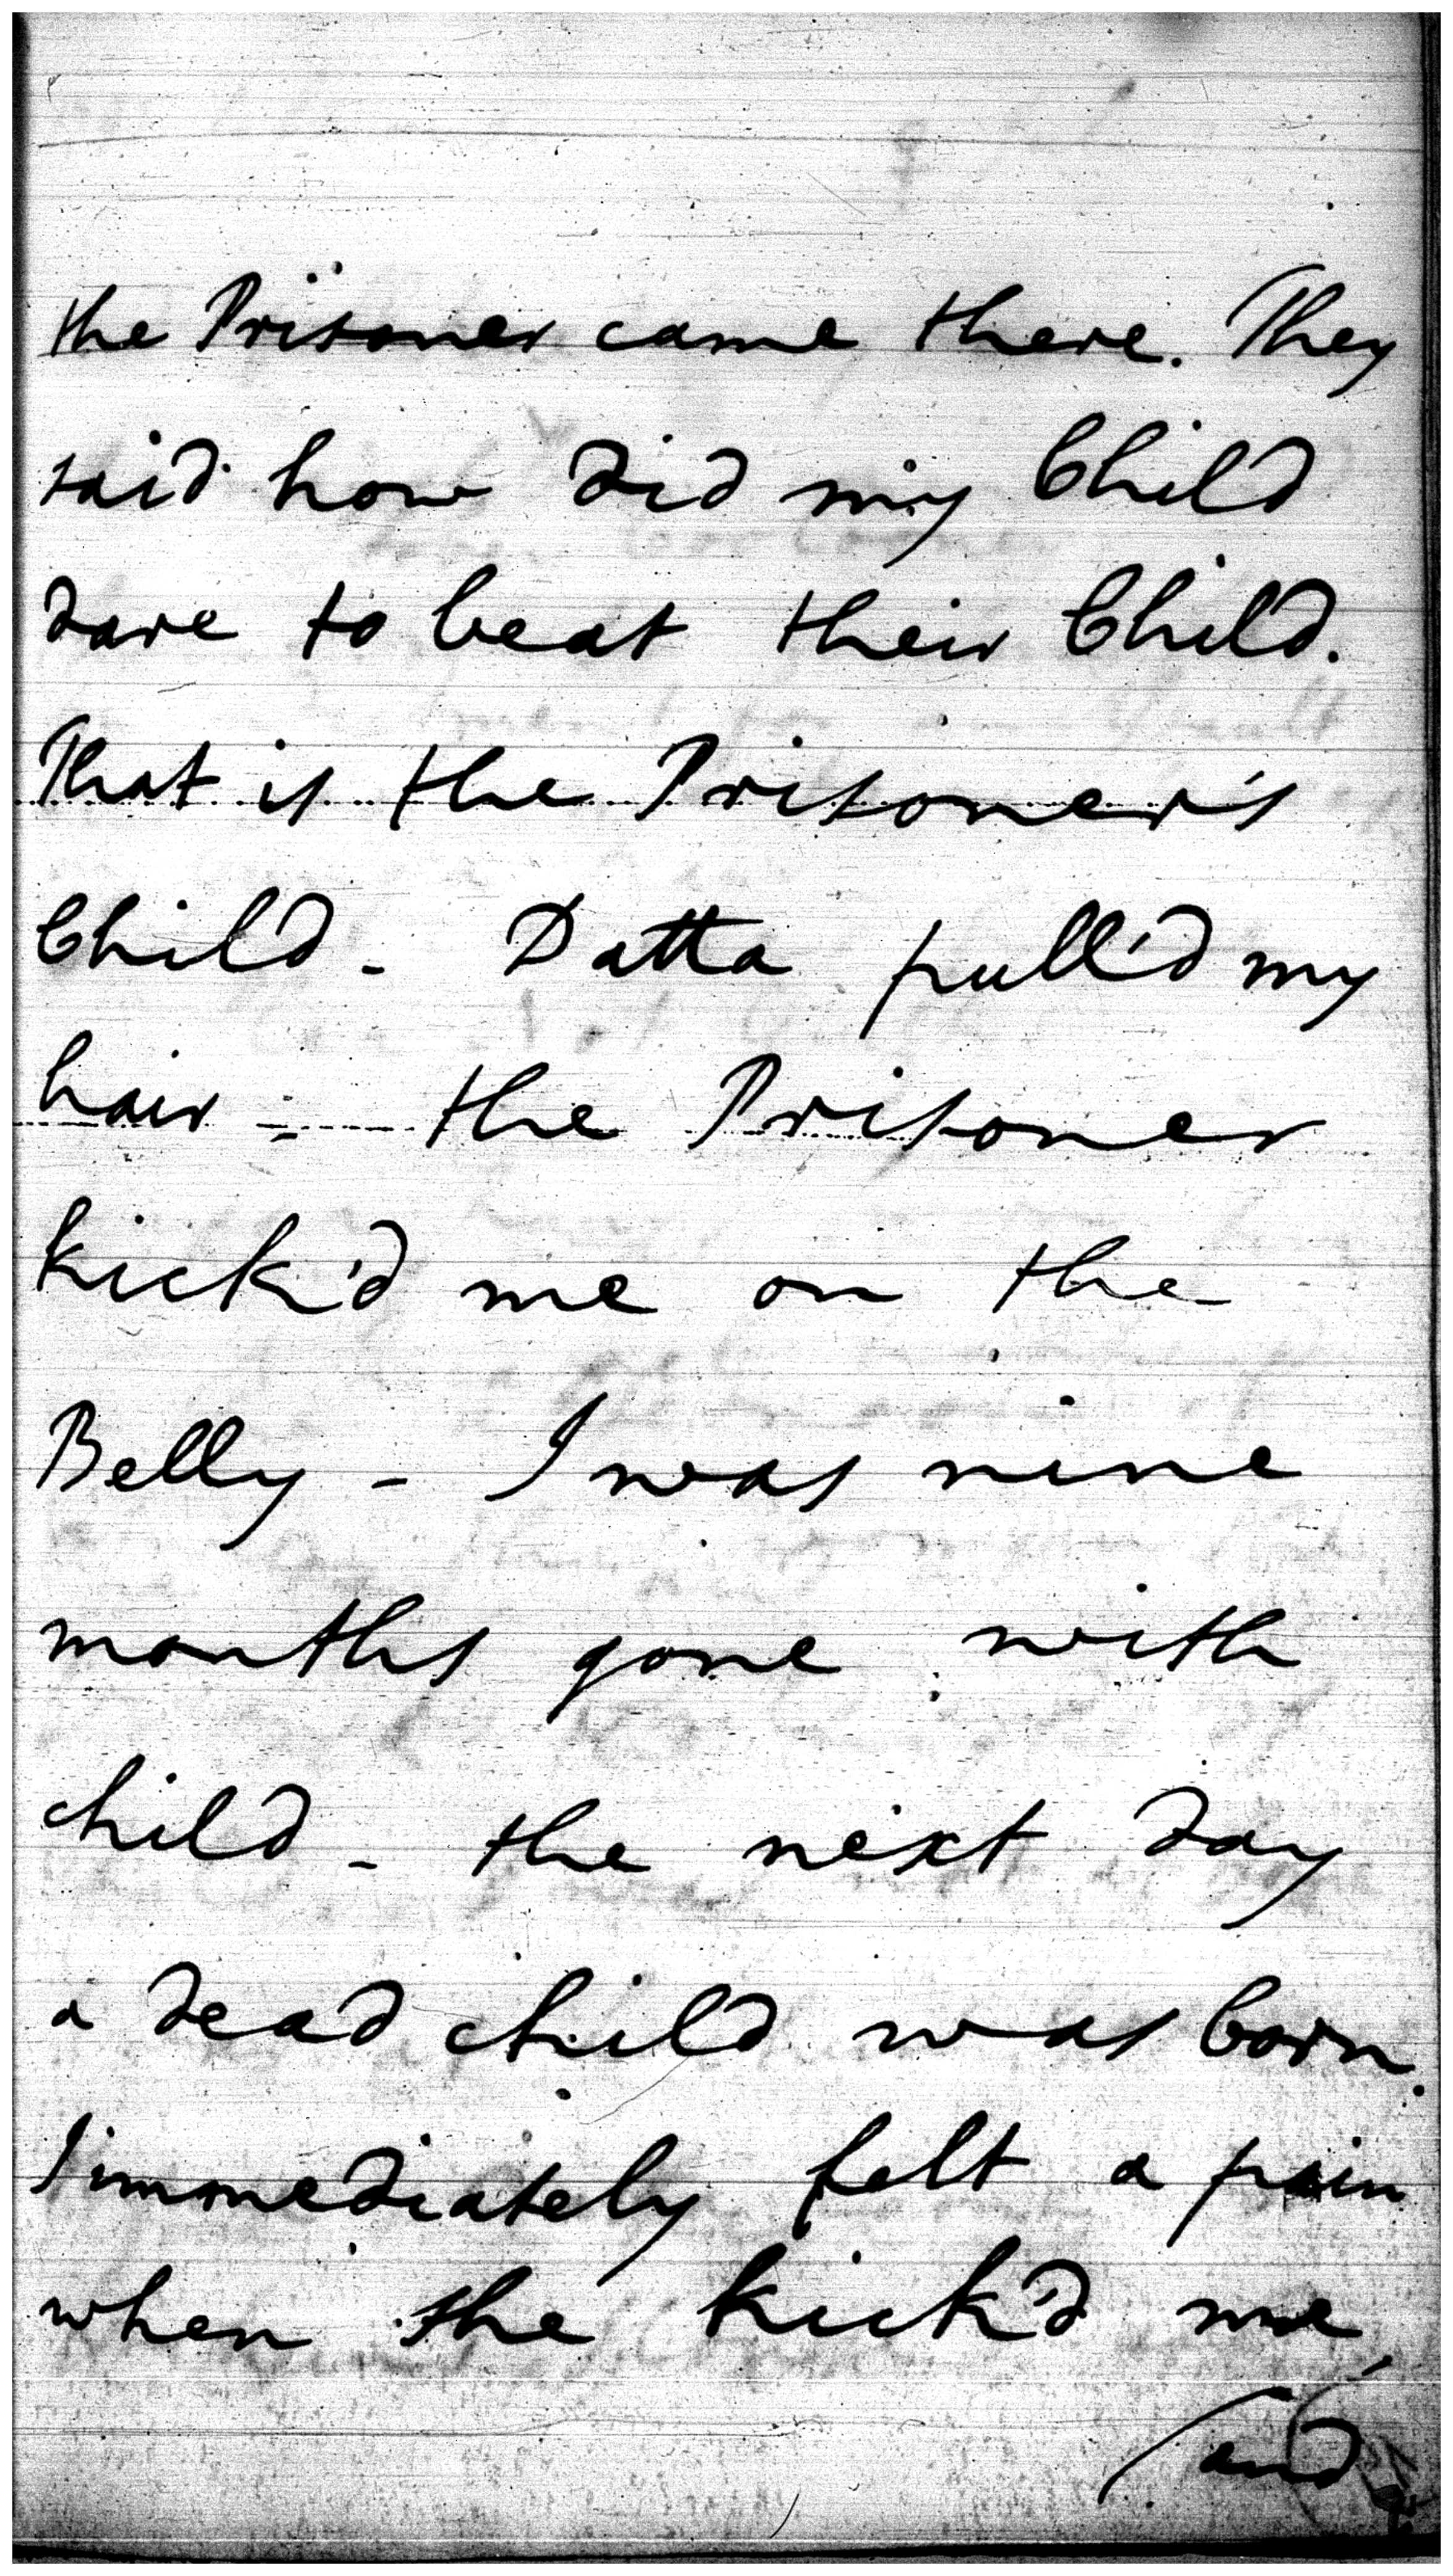 the Prisoner came there. They
said how did my Child
dare to beat their Child.
That is the Prisoner's
Child - Datta pull'd my
hair - the Prisoner
kick'd me on the
Belly - I was nine
months gone with
child - the next day
a dead child was born.
I immediately felt a pain
when she kick'd me,
and